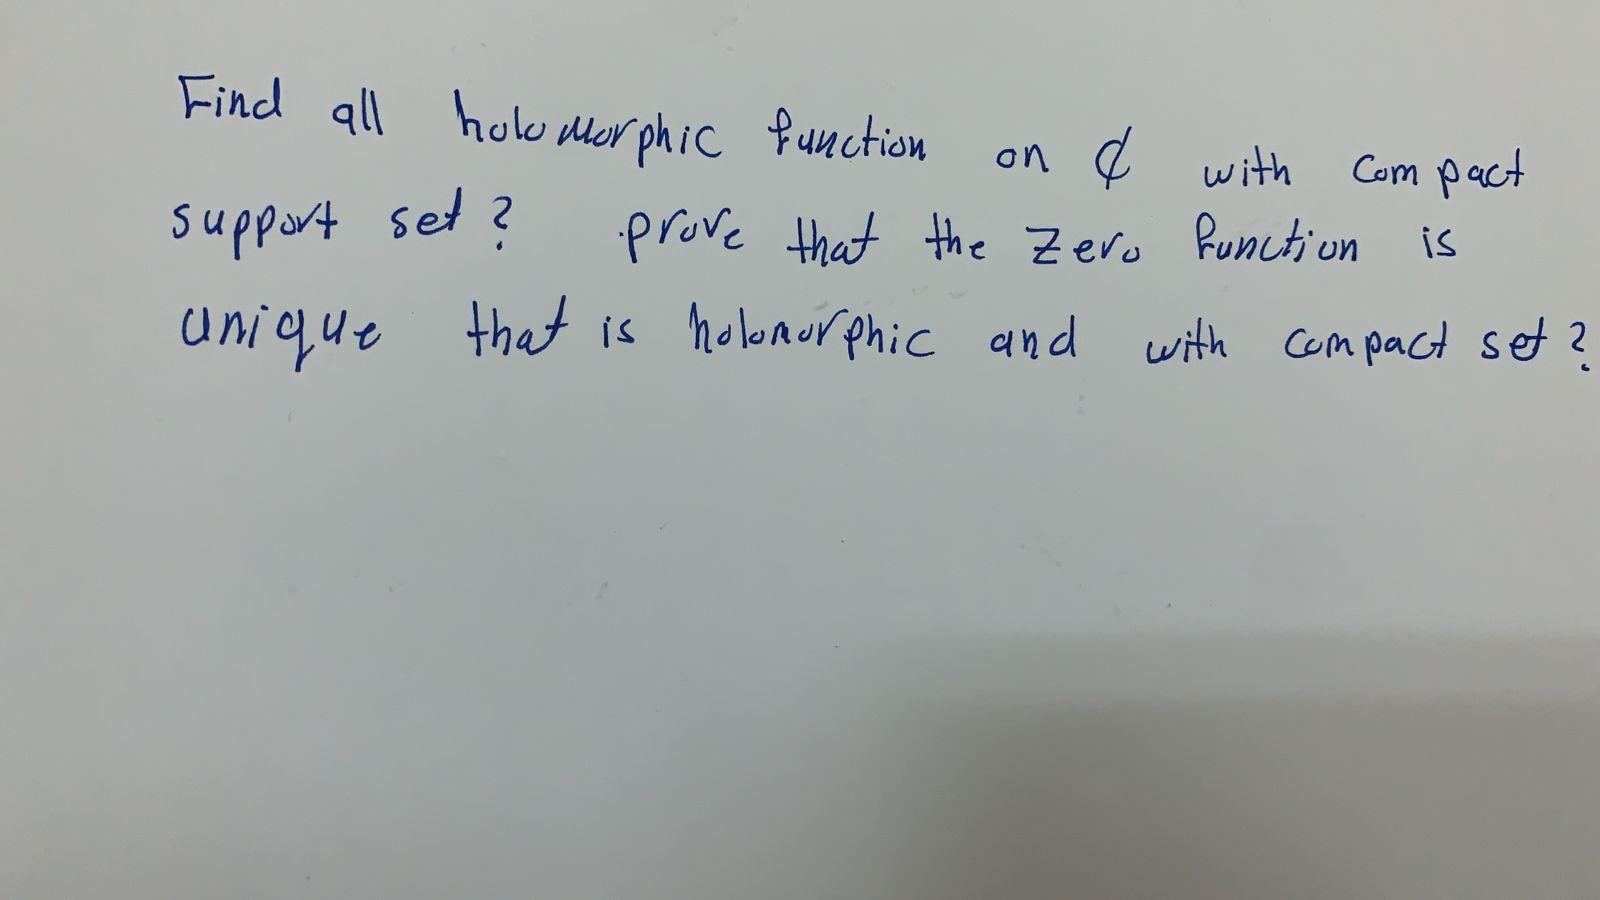 Find all holomorphic function on ₵ with compact
support set? prove that the zero function is
unique that is holomorphic and with compact set?